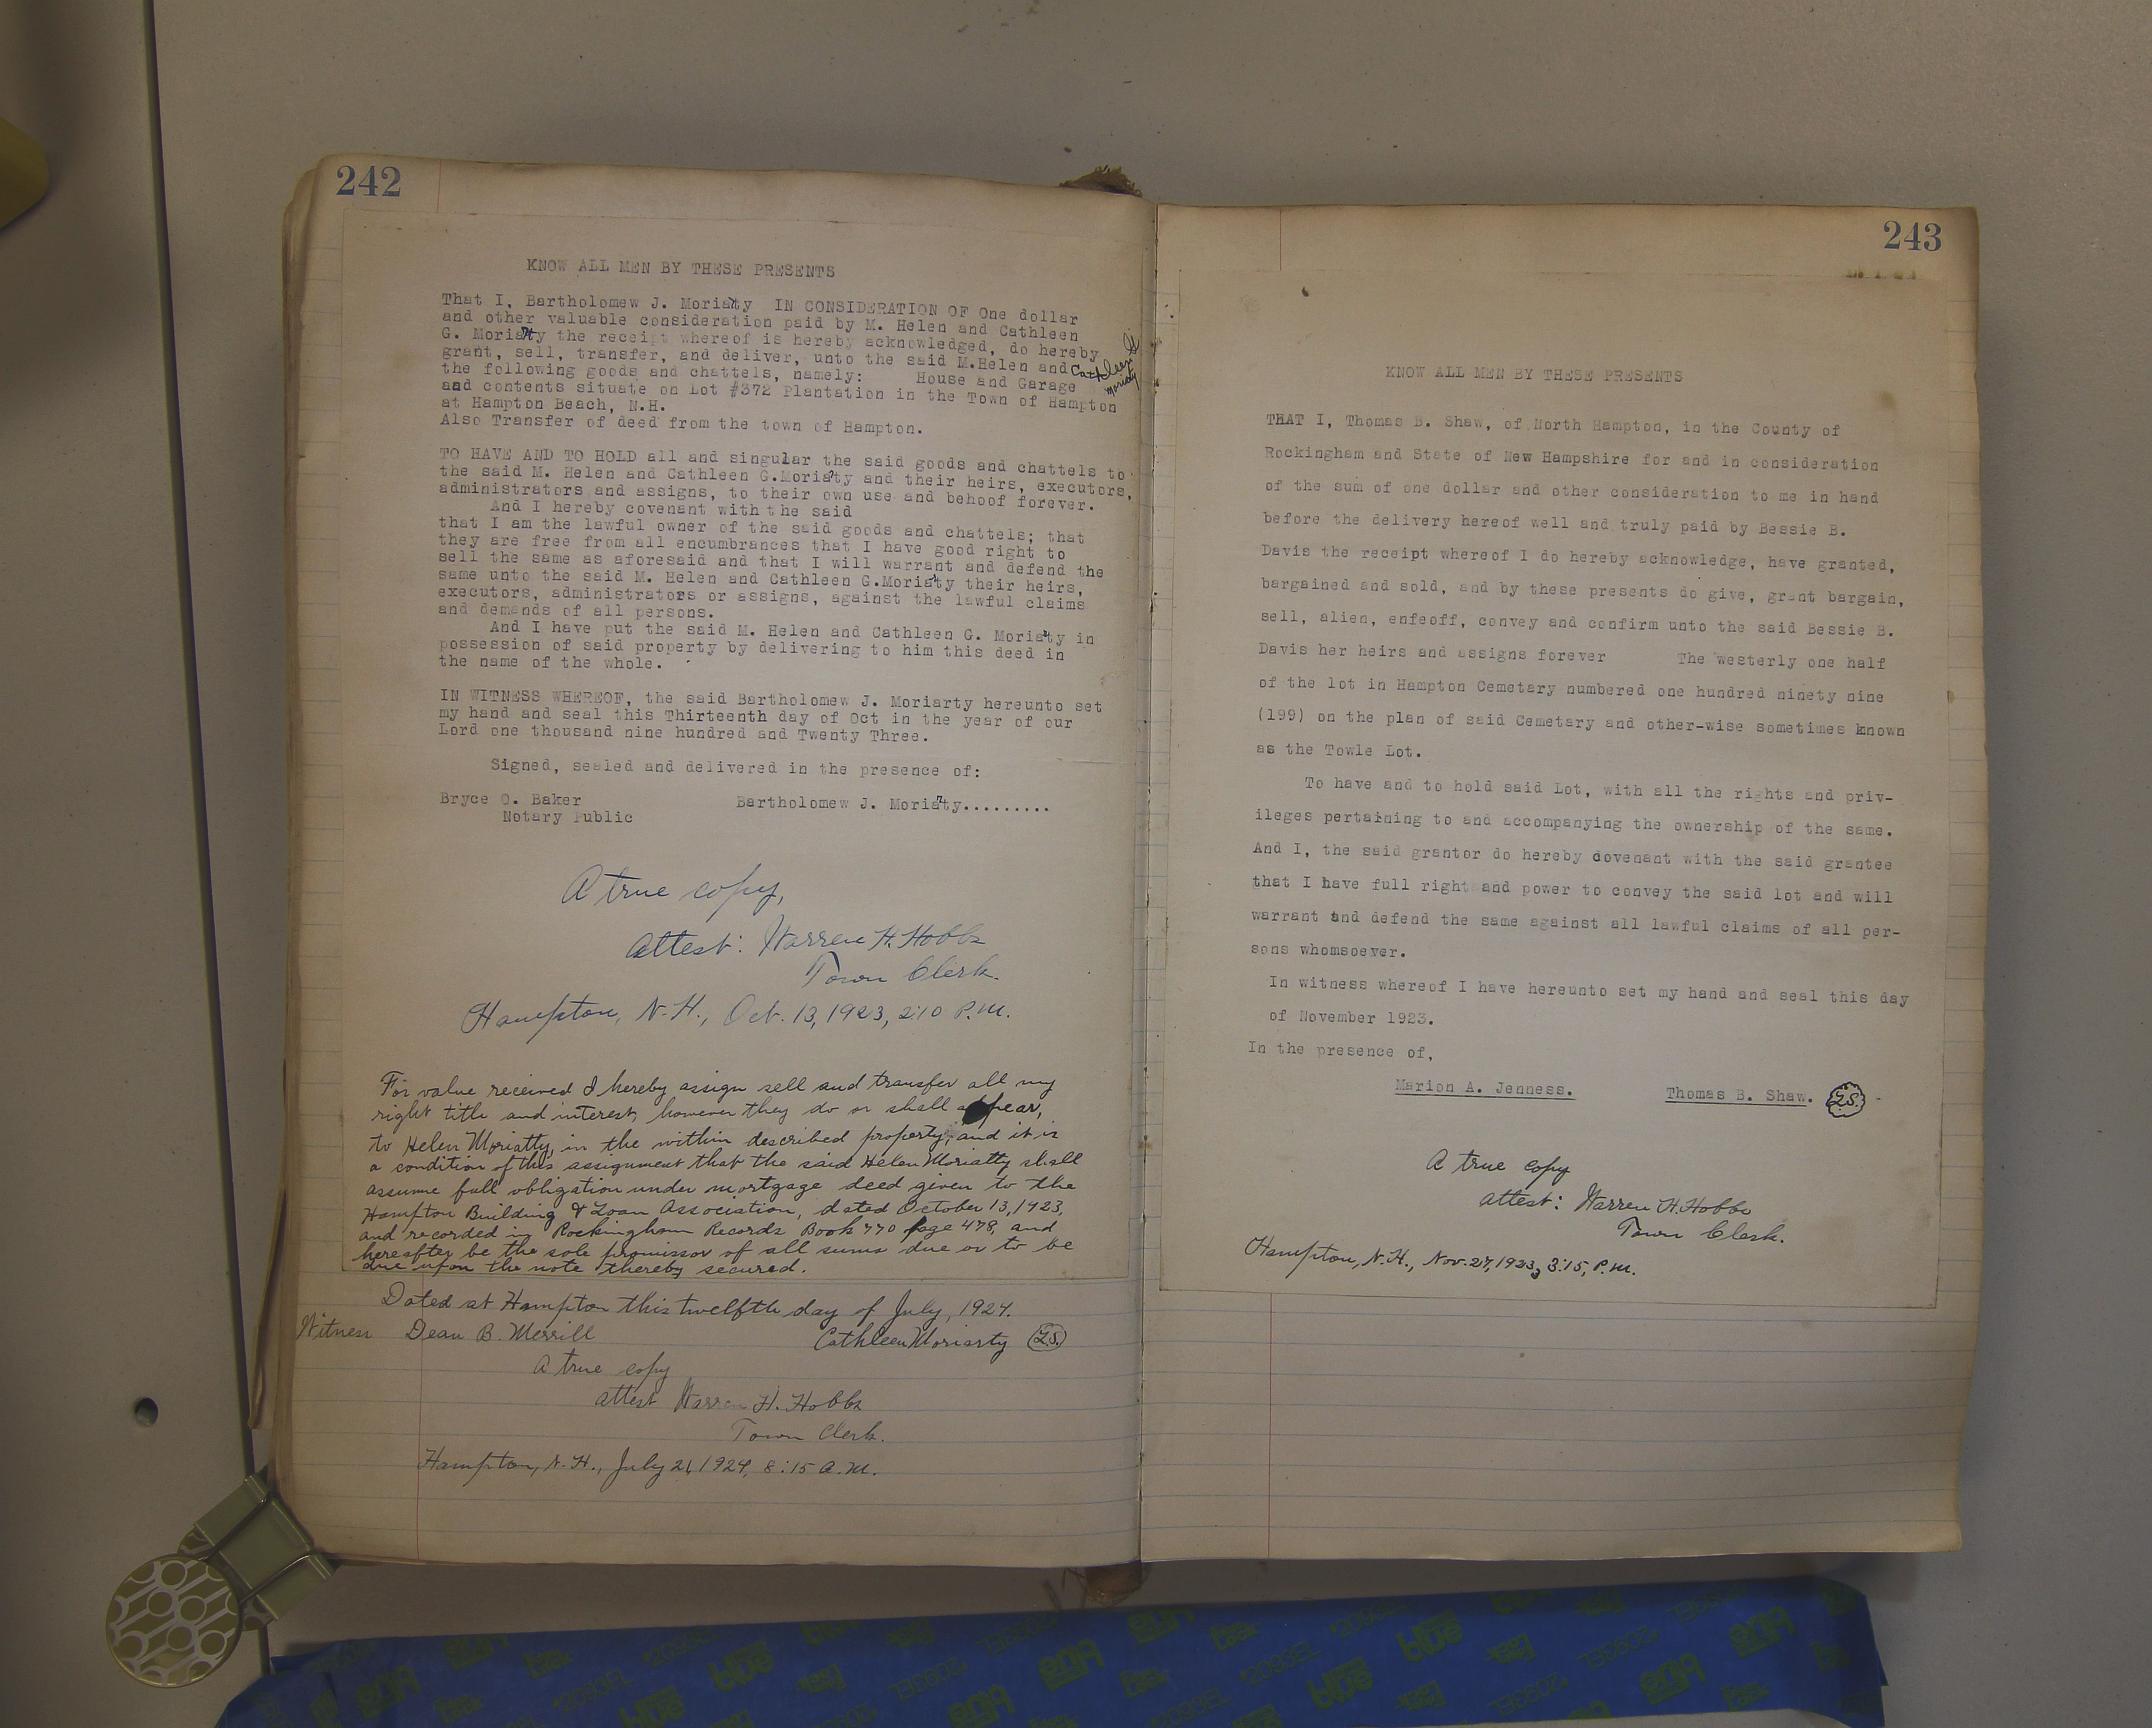 242
KNOW ALL MEN BY THESE PRESENTS
That I, Bartholomew J. Moriarty IN CONSIDERATION OF One dollar
and other valuable consideration paid by M. Helen and Cathleen
G. Moriarty the receipt whereof is hereby acknowledged, do hereby
grant, sell, transfer, and deliver, unto the said M.Helen and Cathleen G Moriarty
the following goods and chattels, namely: House and Garage
and contents situate on Lot #372 Plantation in the Town of Hampton
at Hampton Beach, N.H.
Also Transfer of deed from the town of Hampton.
TO HAVE AND TO HOLD all and singular the said goods and chattels to
the said M. Helen and Cathleen G.Moriarty and their heirs, executors,
administrators and assigns, to their own use and behoof forever.
And I hereby covenant with the said
that I am the lawful owner of the said goods and chattels; that
they are free from all encumbrances that I have good right to
sell the same as aforesaid and that I will warrant and defend the
same unto the said M. Helen and Cathleen G.Moriarty their heirs,
executors, administrators or assigns, against the lawful claims
and demands of all persons.
And I have put the said M. Helen and Cathleen G. Moriarty in
possession of said property by delivering to him this deed in
the name of the whole.
IN WITNESS WHEREOF, the said Bartholomew J. Moriarty hereunto set
my hand and seal this Thirteenth day of Oct in the year of our
Lord one thousand nine hundred and Twenty Three.
Signed, sealed and delivered in the presence of:
Bryce O. Baker Bartholomew J. Moriarty.........
Notary Public
A true copy,
Attest: Warren H. Hobbs
Town Clerk.
Hampton, N.H., Oct. 13, 1923, 2:10 P.M.
For value received I hereby assign sell and transfer all my
right title and interest, however they do or shall appear,
to Helen Moriatty, in the within described property, and it is
a condition of this assignment that the said Helen Moriatty shall
assume full obligation under mortgage deed given to the
Hampton Building & Loan Association, dated October 13, 1923,
and recorded in Rockingham Records Book 770 page 478, and
hereafter be the sole promissor of all sums due or to be
due upon the note thereby secured.
Dated at Hampton this twelfth day of July, 1924.
Witness Dean B. Merrill Cathleen Moriarty L.S.
A true copy
attest Warren H. Hobbs
Town Clerk.
Hampton, N.H., July 21, 1924, 8:15 A.M.
243
KNOW ALL MEN BY THESE PRESENTS
THAT I, Thomas B. Shaw, of North Hampton, in the County of
Rockingham and State of New Hampshire for and in consideration
of the sum of one dollar and other consideration to me in hand
before the delivery hereof well and truly paid by Bessie B.
Davis the receipt whereof I do hereby acknowledge, have granted,
bargained and sold, and by these presents do give, grant bargain,
sell, alien, enfeoff, convey and confirm unto the said Bessie B.
Davis her heirs and assigns forever The Westerly one half
of the lot in Hampton Cemetary numbered one hundred ninety nine
(199) on the plan of said Cemetary and other-wise sometimes known
as the Towle Lot.
To have and to hold said Lot, with all the rights and priv-
ileges pertaining to and accompanying the ownership of the same.
And I, the said grantor do hereby covenant with the said grantee
that I have full right and power to convey the said lot and will
warrant and defend the same against all lawful claims of all per-
sons whomsoever.
In witness whereof I have hereunto set my hand and seal this day
of November 1923.
In the presence of,
Marion A. Jenness. Thomas B. Shaw. L.S.
A true copy
attest: Warren H. Hobbs
Town Clerk.
Hampton, N.H., Nov. 27, 1923, 3:15, P.M.